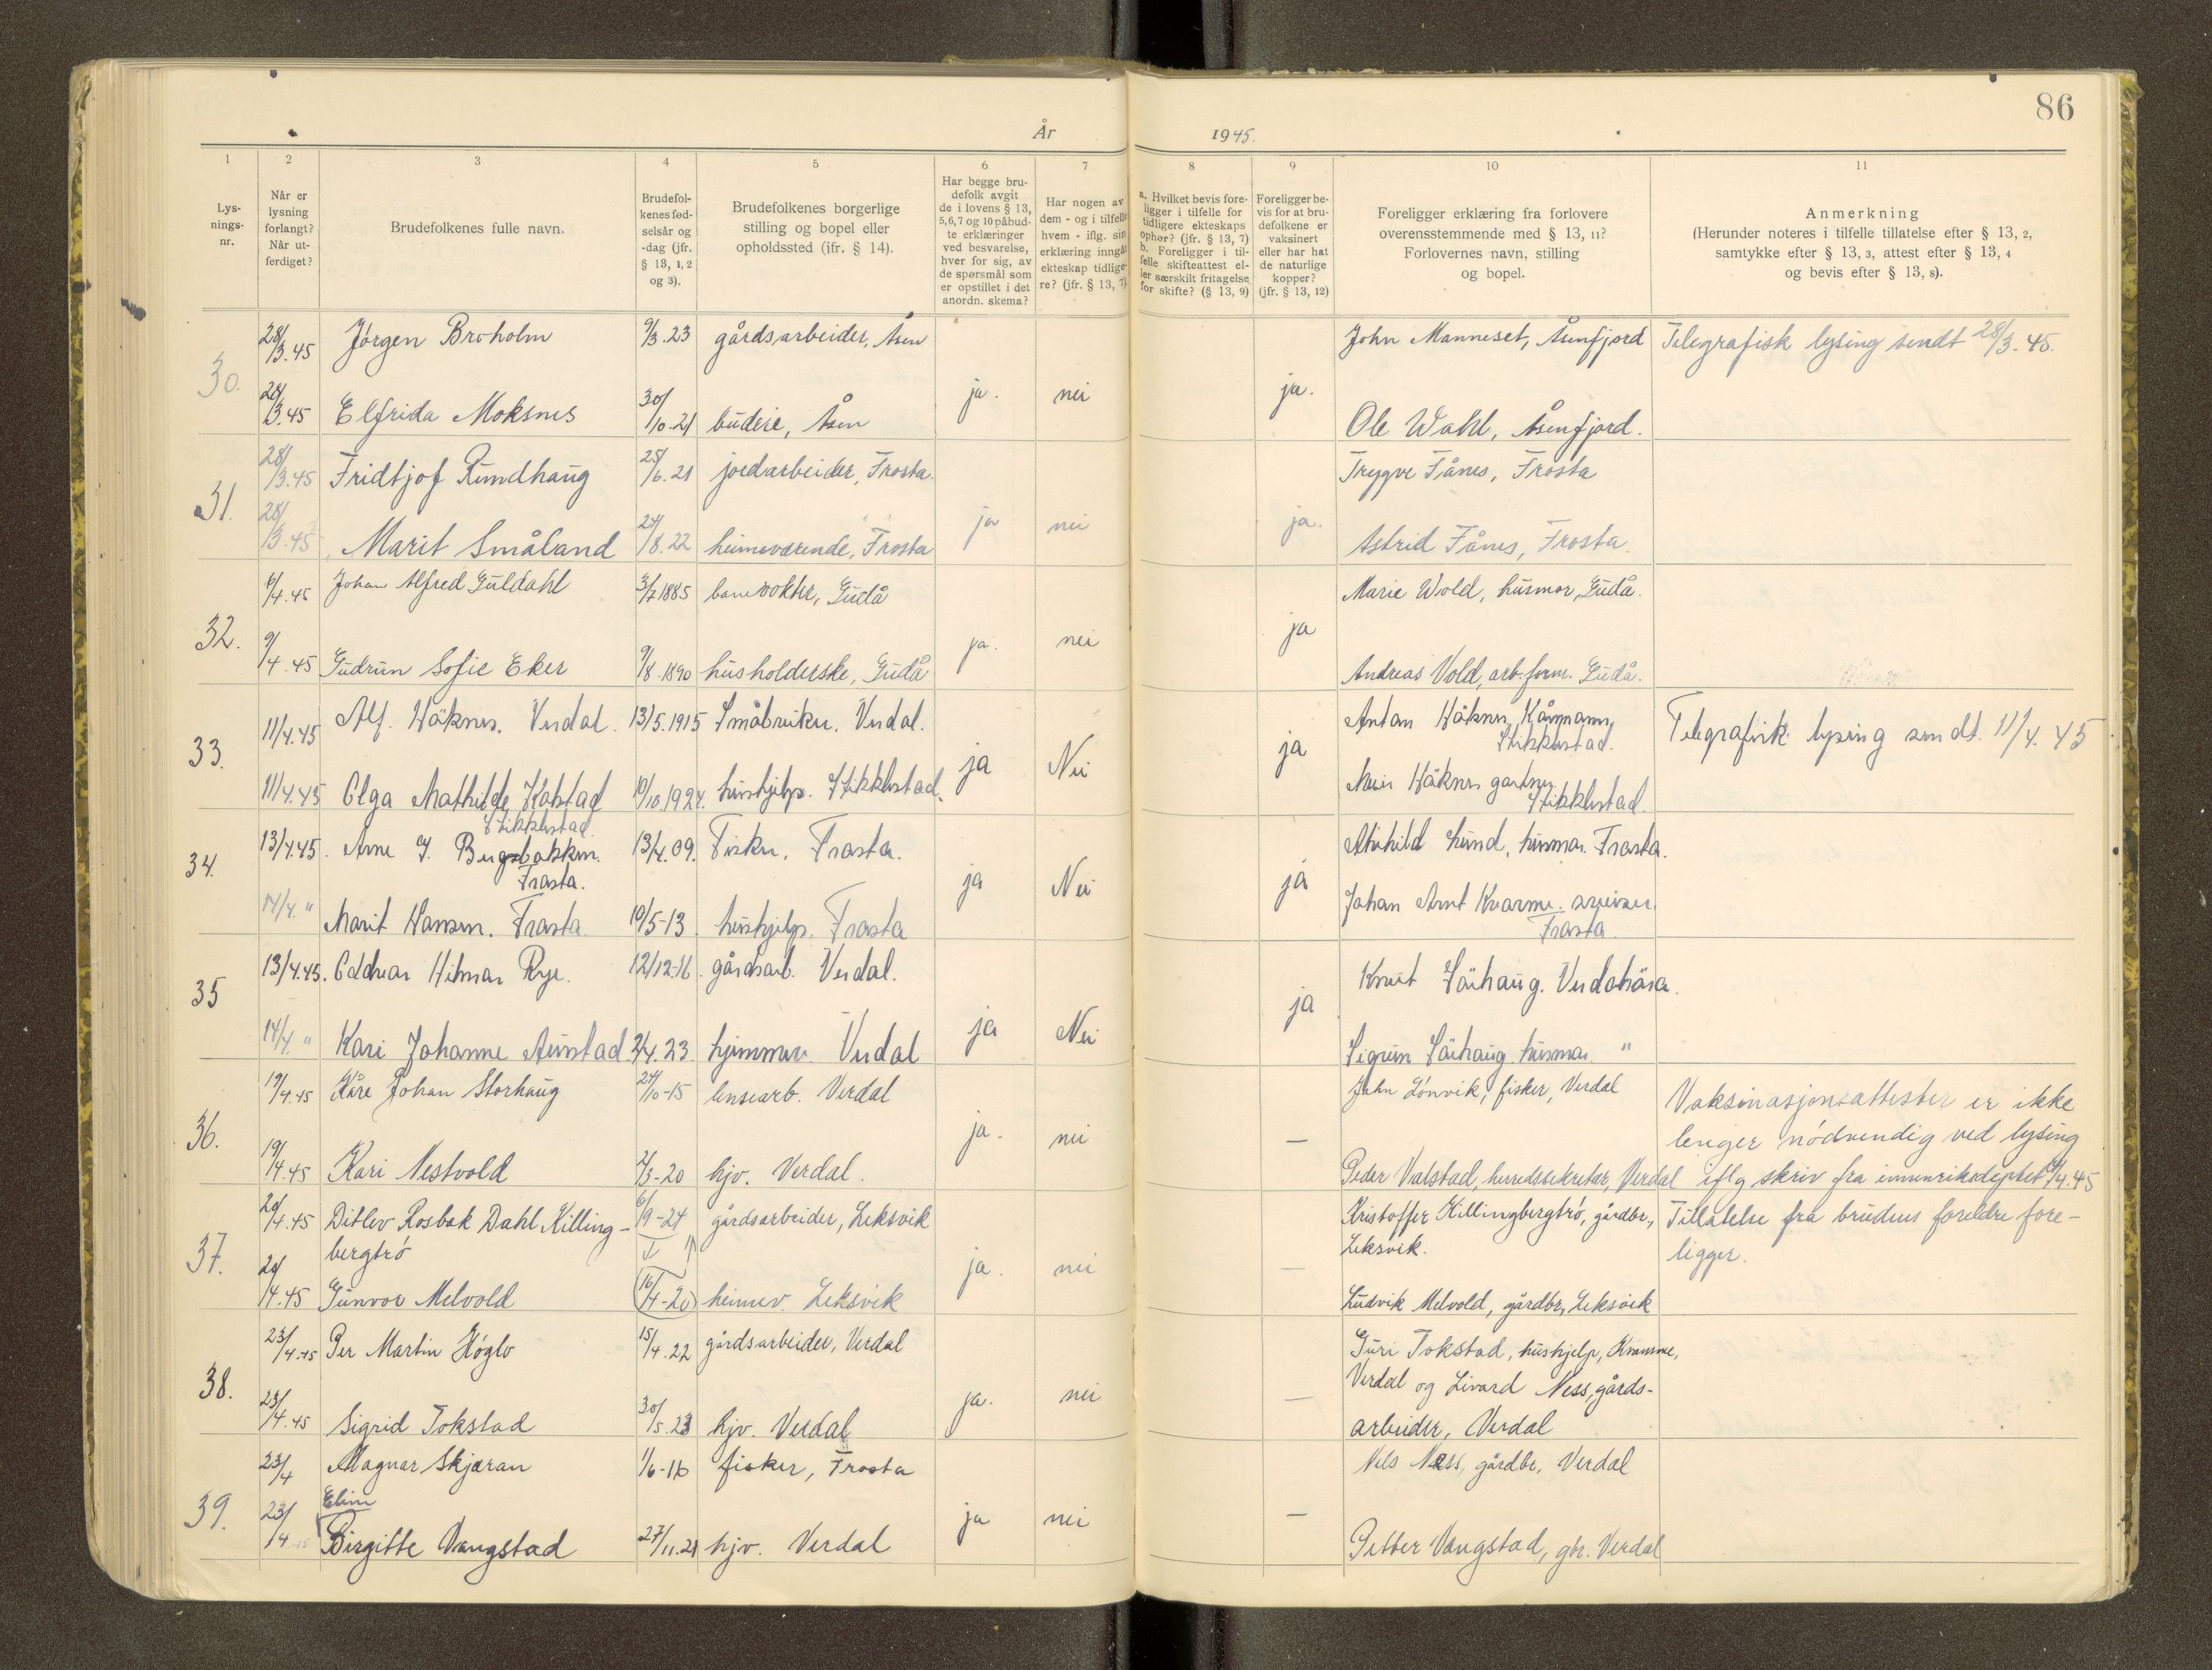 86
År 1945.
1 2 3 4 5 6 7 8 9 10 11
Lys-
nings-
nr.
Når er
lysning
forlangt?
Når ut-
ferdiget?
Brudefolkenes fulle navn.
Brudefol-
kenes fød-
selsår og
-dag (jfr.
§ 13, 1, 2
og 3).
Brudefolkenes borgerlige
stilling og bopel eller
opholdssted (jfr. § 14).
Har begge bru-
defolk avgit
de i lovens § 13,
5, 6, 7 og 10 påbud-
te erklæringer
ved besvarelse,
hver for sig, av
de spørsmål som
er opstillet i det
anordn. skema?
Har nogen av
dem - og i tilfelle
hvem - iflg. sin
erklæring inngått
ekteskap tidlige-
re? (jfr. § 13, 7)
a. Hvilket bevis fore-
ligger i tilfelle for
tidligere ekteskaps
ophør? (jfr. § 13, 7)
b. Foreligger i til-
felle skifteattest el-
ler særskilt fritagelse
for skifte? (§ 13, 9)
Foreligger be-
vis for at bru-
defolkene er
vaksinert
eller har hat
de naturlige
kopper?
(jfr. § 13, 12)
Foreligger erklæring fra forlovere
overensstemmende med § 13, 11?
Forlovernes navn, stilling
og bopel.
Anmerkning
(Herunder noteres i tilfelle tillatelse efter § 13, 2,
samtykke efter § 13, 3, attest efter § 13, 4
og bevis efter § 13, 8).
28/3.45 Jörgen Broholm 9/3.23 gårdsarbeider, Åsen John Manneset, Åsenfjord Telegrafisk lysing sendt 28/3.45.
30. ja. nei ja.
28/3.45 Elfrida Moksnes 30/10.21 budeie, Åsen Ole Wahl, Åsenfjord.
28/3.45 Fridtjof Rundhaug 25/6.21 jordarbeider, Frosta. Trygve Fånes, Frosta
31. ja nei ja.
28/3.45 Marit Småland 24/8.22 heimeværende, Frosta Astrid Fånes, Frosta.
6/4.45 Johan Alfred Guldahl 3/7 1885 banevokter, Gudå Marie Wold, husmor, Gudå.
32. ja. nei ja
9/4.45 Gudrun Sofie Eker 9/8.1890 husholderske, Gudå Andreas Vold, arb.form. Gudå.
11/4.45 Alf. Håknes. Verdal. 13/5.1915 Småbruker. Verdal. Anton Håknes,
Stikklestad. Telegrafisk lysing sendt. 11/4.45
33. ja Nei ja
11/4.45 Olga Mathilde Kolstad 10/10.1924. hushjelp. Stikklestad. Håknes
Stikklestad. Stikklestad.
13/4.45. Arne J. 13/4.09. Fisker. Frosta. husmor. Frosta.
Frosta.
34. ja Nei ja
14/4. " Marit Hansen. Frosta 10/5-13. hushjelp. Frosta Johan Arnt Kvarme.
Frosta.
13/4.45. Oddvar Hilmar Rye. 12/12-16. gårdsarb. Verdal. Knut Verdalsöra.
35 ja Nei ja
14/4. " Kari Johanne Aunstad 2/4.23 hjemmev. Verdal Sigrun husmor. "
19/4.45 Kåre Johan Storhaug 24/10-15 lensearb. Verdal John Lönvik, fisker, Verdal Vaksinasjonsattester er ikke
36. ja. nei — lenger nödvendig ved lysing
19/4.45 Kari Nestvold 2/3-20 hjv. Verdal. Peder Valstad, herredssekretær, Verdal iflg skriv fra innenriksdeptet 9/4.45
20/4.45 Ditlev Rosbak Dahl Killing- 6/9-24 gårdsarbeider, Leksvik Kristoffer Killingbergtrö, gårdbr., Tillatelse fra brudens foreldre fore-
bergtrö Leksvik. ligger.
37. ja. nei —
20/4.45 Gunvor Melvold 16/4-20 heimev. Leksvik Ludvik Melvold, gårdbr, Leksvik
23/4.45 Per Martin Höglo 15/4.22 gårdsarbeider, Verdal Guri Tokstad, hushjelp,
38. ja. nei — Verdal og Livard Ness, gårds-
23/4.45 Sigrid Tokstad 30/5.23 hjv. Verdal arbeider, Verdal
23/4 Magnar Skjæran 1/6-16 fisker, Frosta Nils Ness, gårdbr, Verdal
Elin
39. ja nei —
23/4.45 Birgitte Vangstad 27/11.21 hjv. Verdal Petter Vangstad, gbr. Verdal